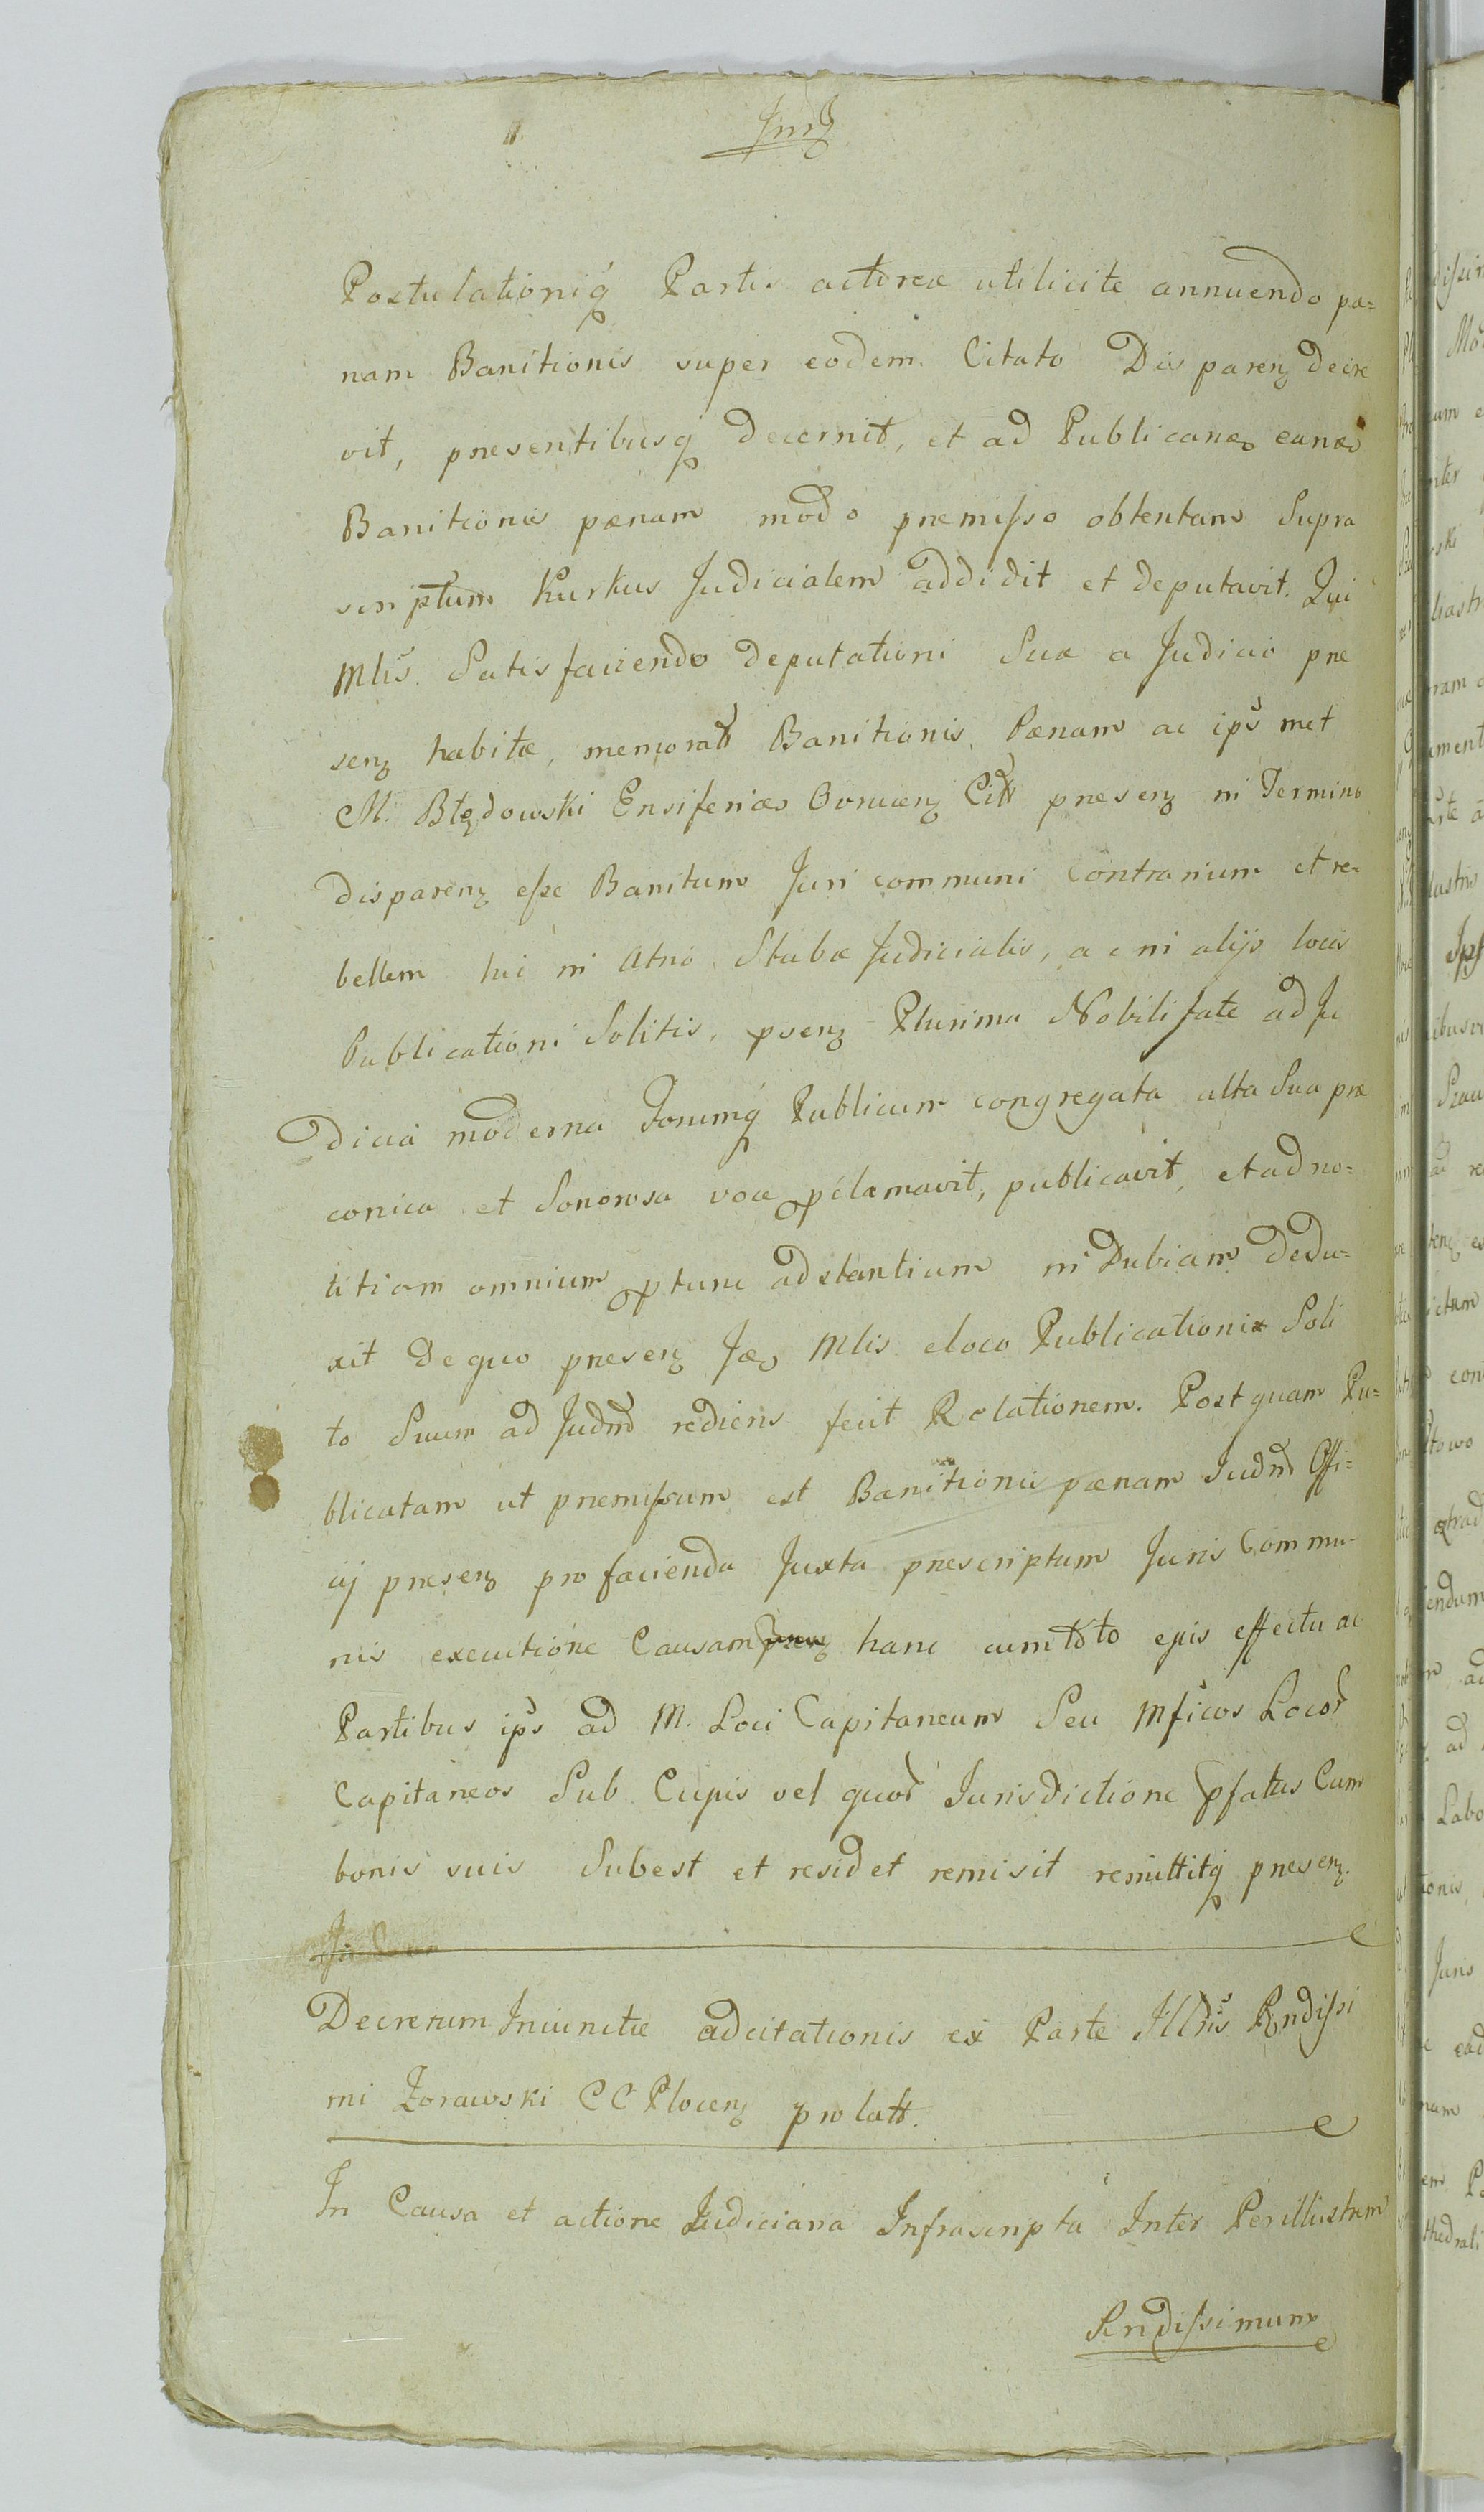 Postulationiq́ Partis actoreæ utilicite annuendo pæ=
nam Banitionis super eodem Citato Disparenʒ decre
vit, presentibusq́ decernit, et ad Publicanđ eandē
Banitionis pænam modo premisso obtentam Supra
scriptum Kurkus Judicialem addidit et deputavit. Qui
Mlis. Satisfaciendo deputationi Suæ a Judicio pre
senʒ habitæ, memoratt Banitionis Pænam ac ips met
M. Błędowski Ensiferiđ Ovrucenʒ Citt presenʒ in Termino
disparenʒ esse Banitum Juri communi contrarium et re=
bellem hic in Atrio Stubæ Judicialis, ac in alijs locis
Publicationi Solitis, psenʒ Plurima Nobilitate ad Ju
dicia moderna Forumq́ Publicum congregata alta Sua præ
conica et Sonorosa voce pclamavit, publicavit, et ad no=
titiam omnium ptunc adstantium in Dubiam dedu=
xit de quo presenʒ Jđ Mlis. eloco Publicationis Soli
to Suum ad Judm rediens fecit Relationem. Post quam Pu=
blicatam ut premissum est Banitionis pænam Judm Offi=
cij presenʒ pro facienda Juxta prescriptum Juris Commu=
nis executione Causam hanc cum toto ejus effectu ac
Partibus ips ad M. Loci Capitaneum Seu Mficos Locor
Capitaneos Sub Cujus vel quor Jurisdictione pfatus Cum
bonis suis Subest et residet remisit remittitq́ presenʒ.
Decretum Iniunctæ adcitationis ex Parte Illris Rndissi
mi Zorawski CC Plocenʒ prolatt.
In Causa et actione Judiciaria Infrascripta Inter Perillustrem
Rndissimum